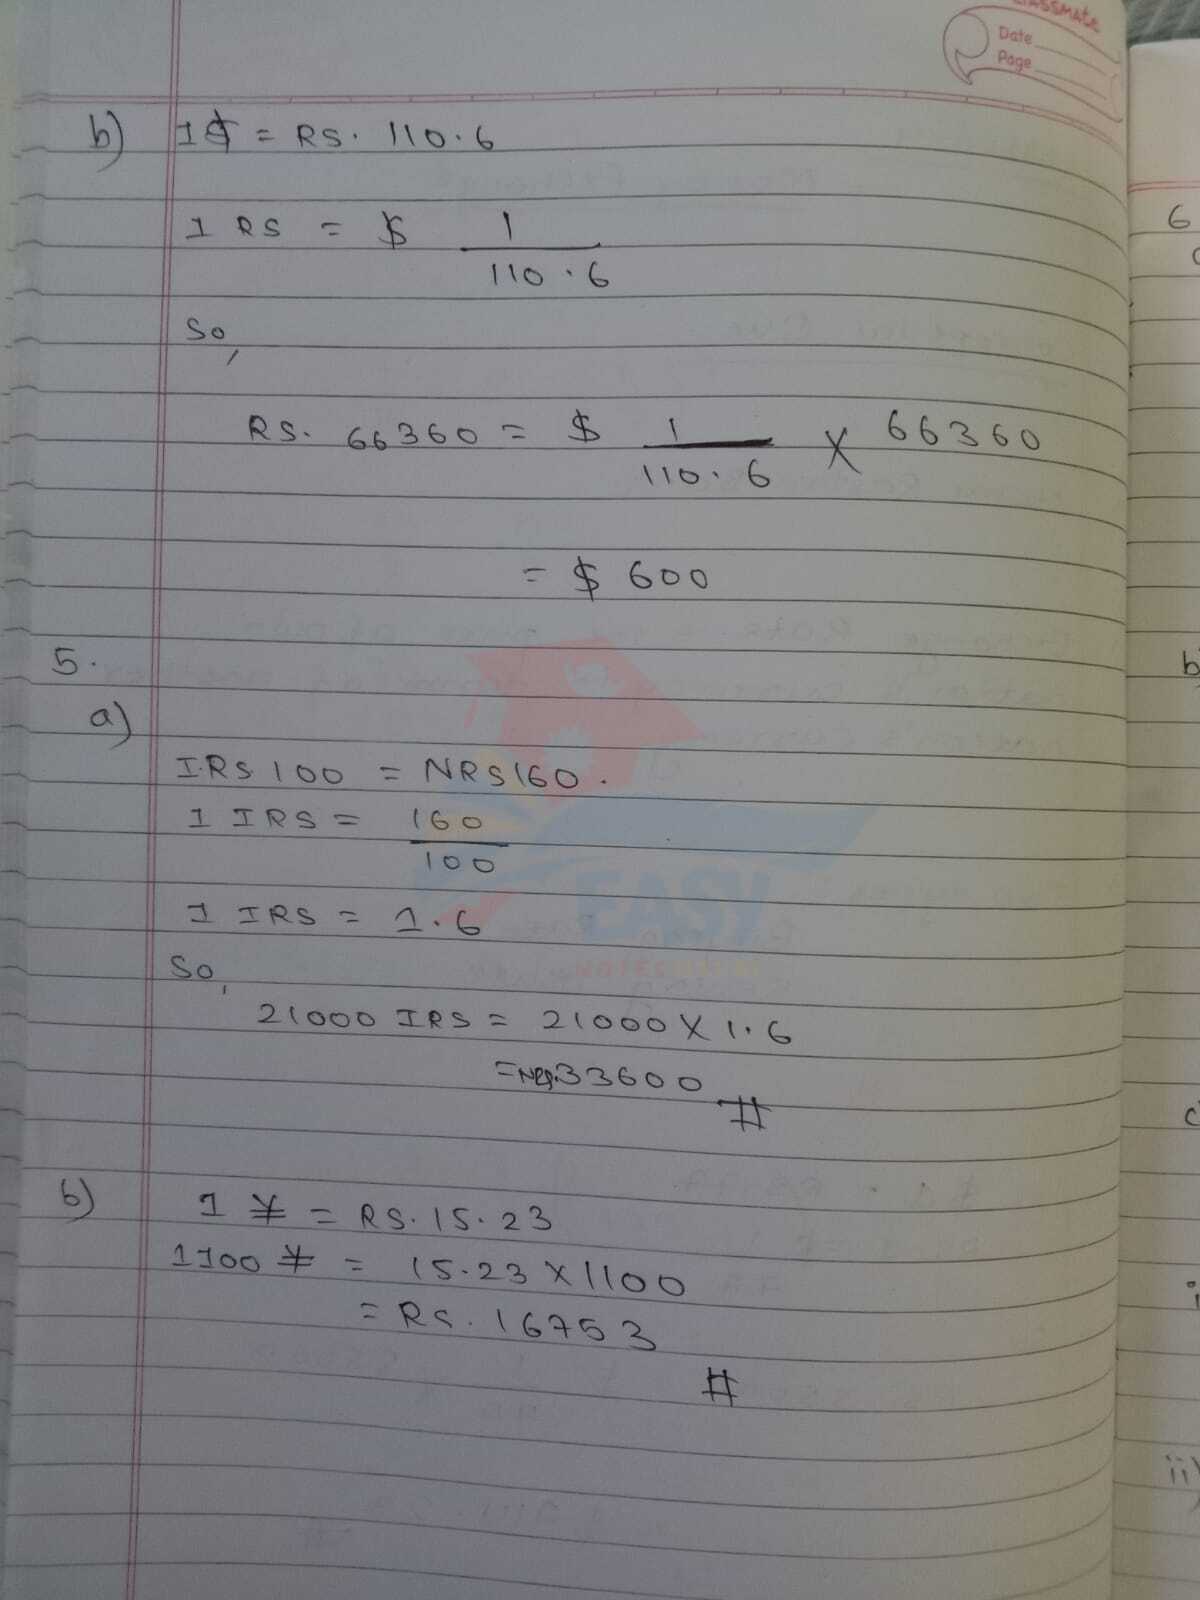 classmate
Date
Page
b) 1$ = RS. 110.6
1 RS = $ 1/110.6
So,
RS. 66360 = $ 1/110.6 X 66360
= $ 600
5.
a)
I.RS 100 = NRS 160.
1 IRS = 160/100
1 IRS = 1.6
So,
21000 IRS = 21000 X 1.6
= NRS.33600 #
b) 1 ¥ = RS. 15.23
1100 ¥ = 15.23 X 1100
= RS. 16753
#
EASY
6
b)
c)
i
ii)